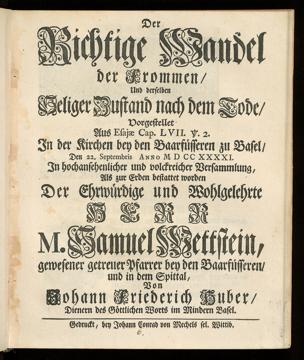 Der
Richtige Wandel
der Frommen/
Und derselben
Seliger Zustand nach dem Tode/
Vorgestellet
Aus Esajæ Cap. LVII. ℣. 2.
In der Kirchen bey den Baarfüsseren zu Basel/
Den 22. Septembris ANNO M D CC XXXXI.
In hochansehenlicher und volckreicher Versammlung,
Als zur Erden bestattet worden
Der Ehrwürdige und Wohlgelehrte
HERR
M. Samuel Wettstein,
gewesener getreuer Pfarrer bey den Baarfüsseren/
und in dem Spittal,
Von
Johann Friederich Huber/
Dienern des Göttlichen Worts im Mindern Basel.
Gedruckt, bey Johann Conrad von Mechels sel. Wittib.